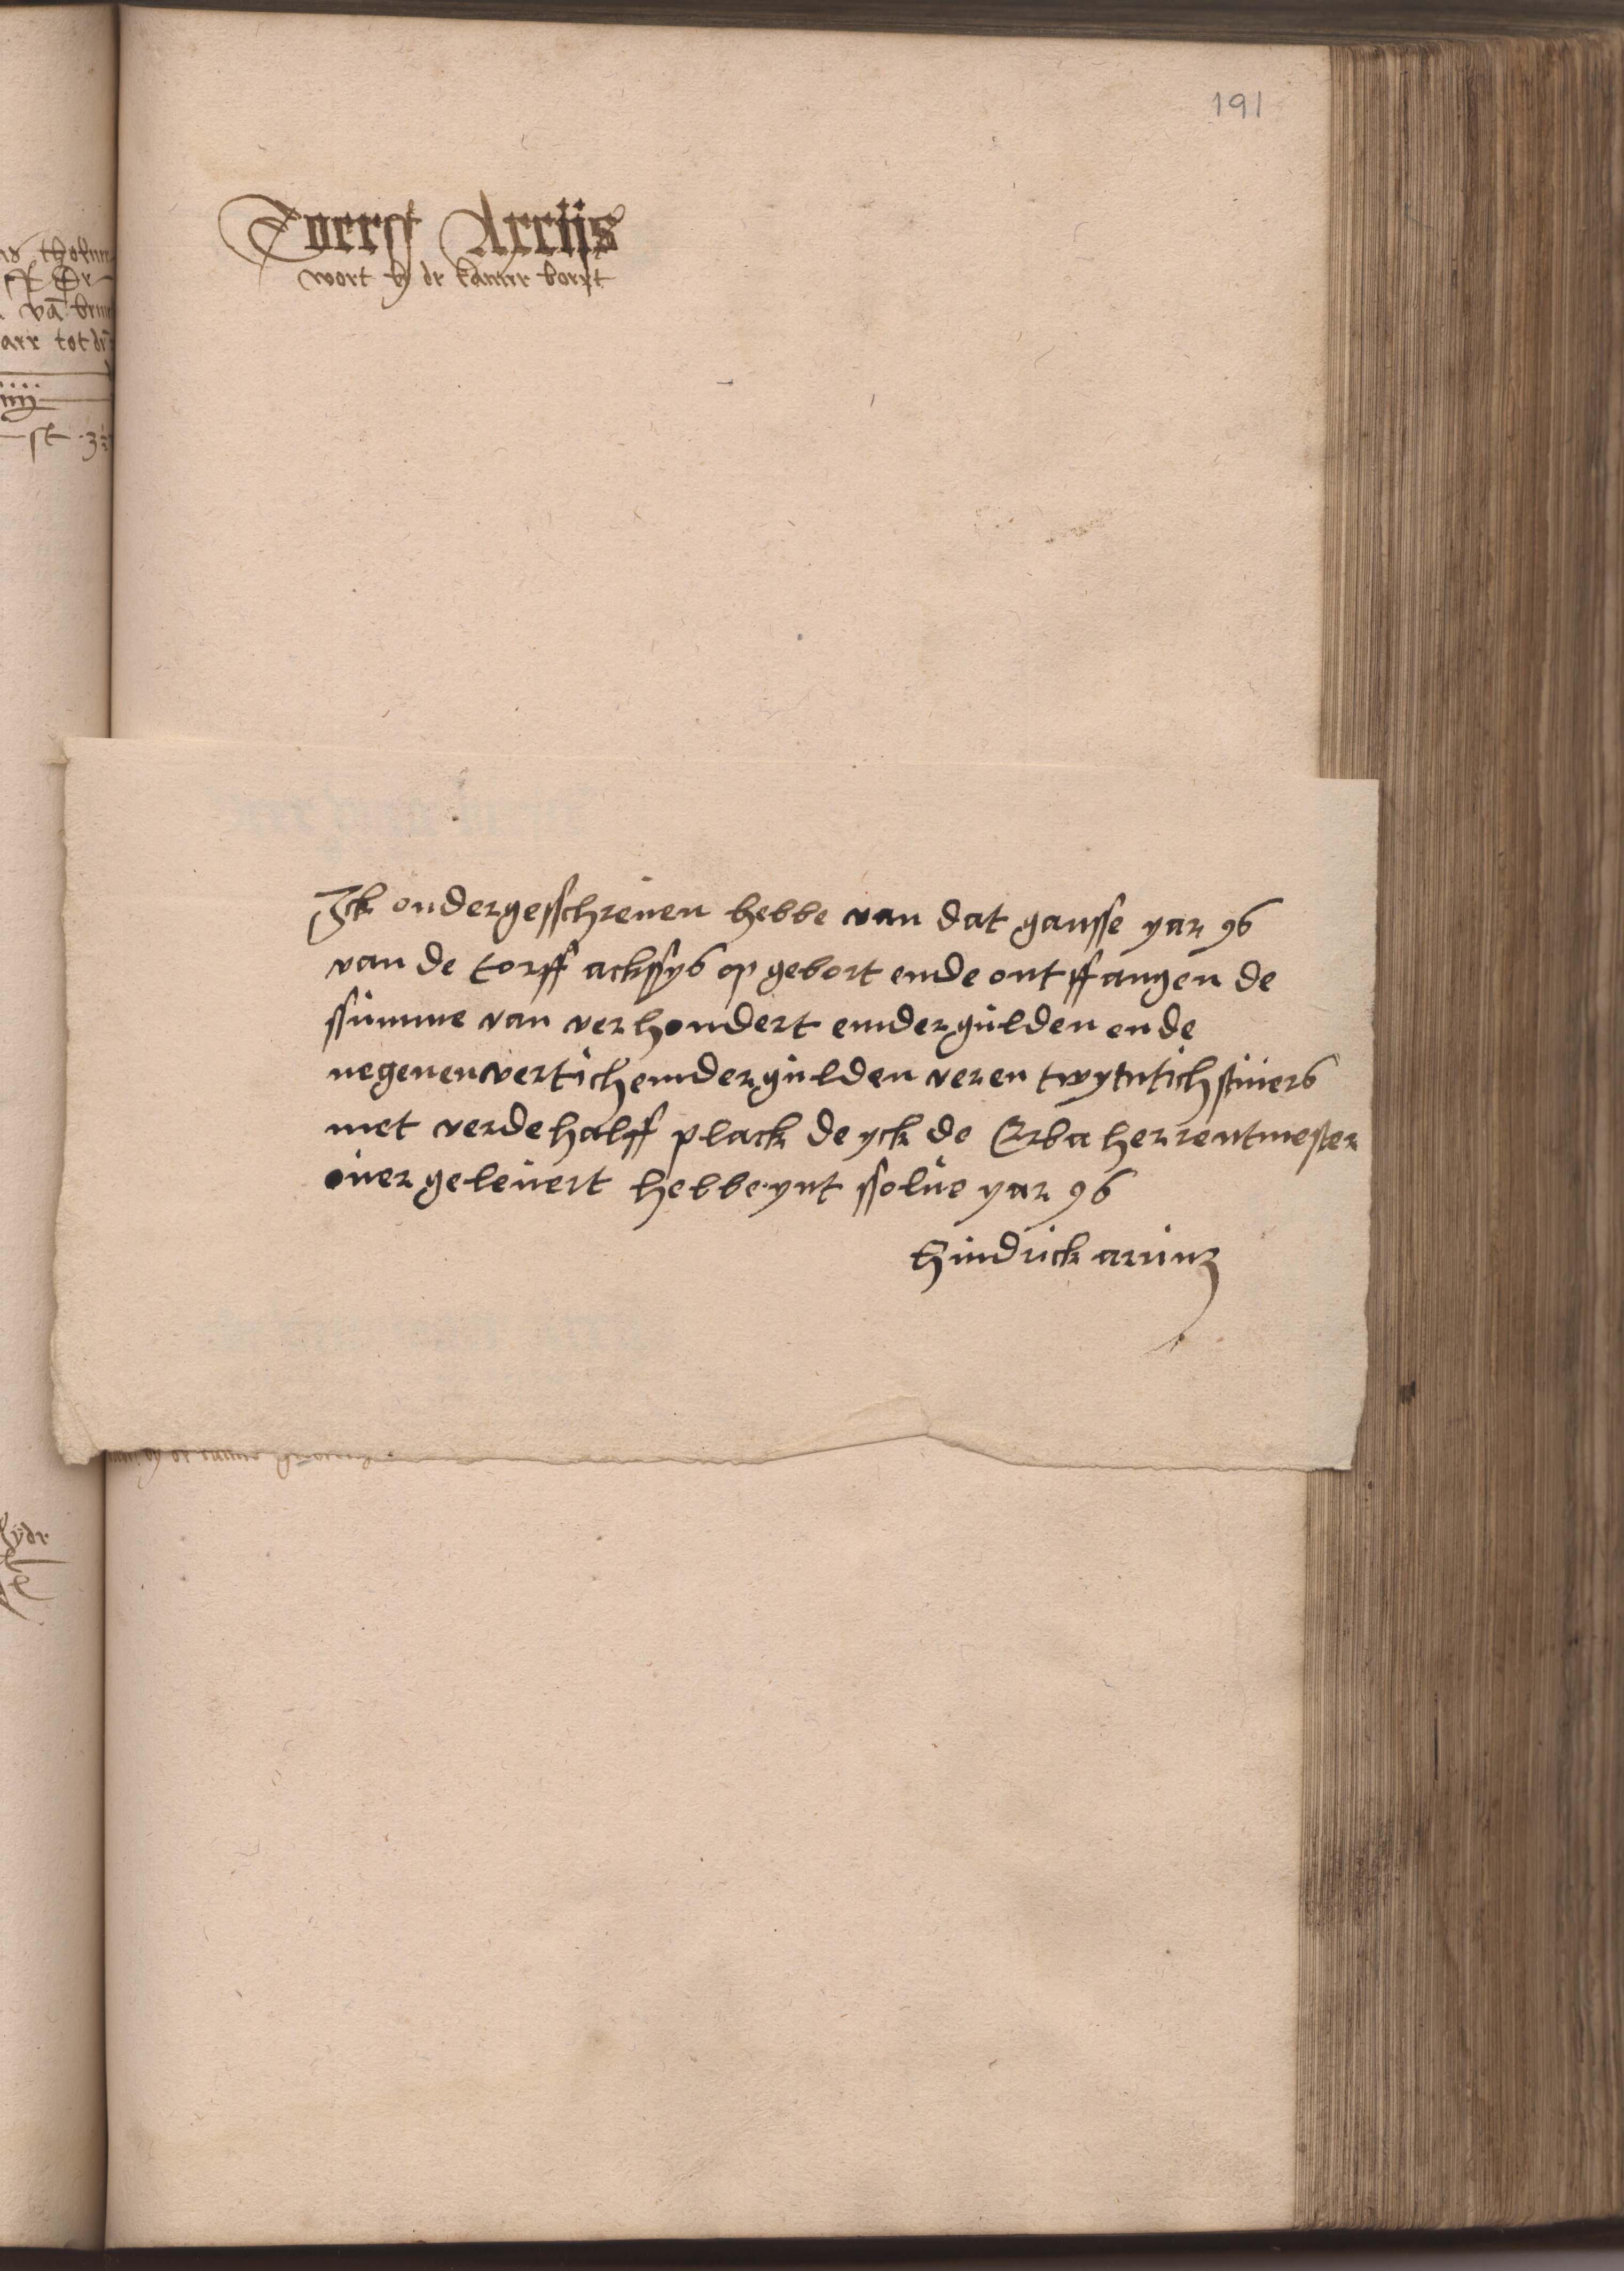 191
Toerff Accijs
wort by de kamer boert
Ick ondergesschreuen hebbe van dat gansse yar 96
van de torff ackssys op gebort ende ontffangen de
ssumme van verhondert emdergulden ende
negenenvertich emdergulden veren twyntich stuuers
met verdehalff plack de yck de Erba her rentmester
ouergeleuert hebbe ynt sselue yar 96
Hindrick